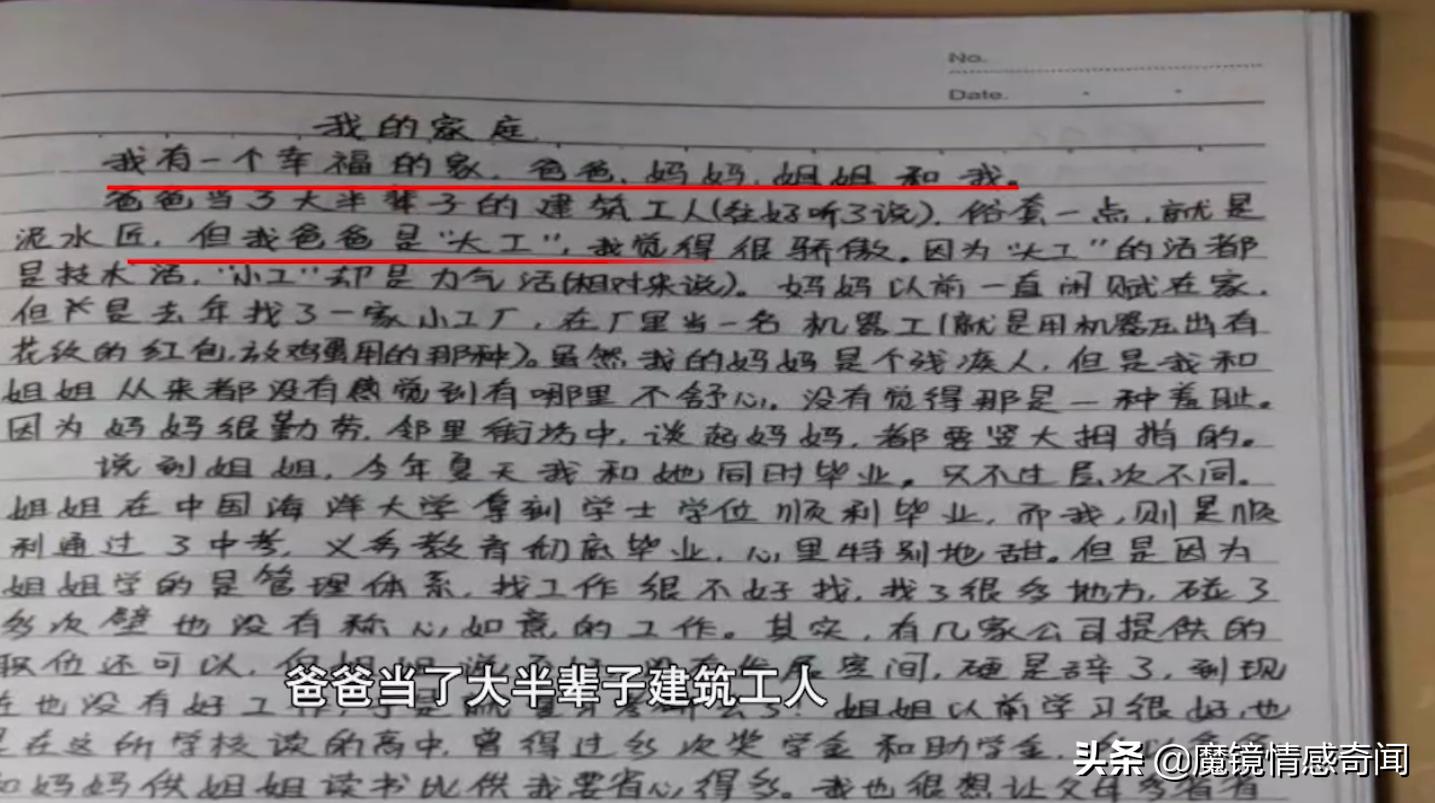 No.
Date.
我的家庭
我有一个幸福的家。爸爸、妈妈、姐姐和我。
爸爸当了大半辈子的建筑工人(往好听了说)。俗套一点,就是
泥水匠,但我爸爸是“大工”,我觉得很骄傲。因为“大工”的活都
是技术活,“小工”却是力气活(相对来说)。妈妈以前一直闲赋在家,
但是去年找了一家小工厂,在厂里当一名机器工(就是用机器压出有
花纹的红包,放鸡蛋用的那种)。虽然我的妈妈是个残疾人,但是我和
姐姐从来都没有感觉到有哪里不舒心,没有觉得那是一种羞耻。
因为妈妈很勤劳,邻里街坊中,谈起妈妈,都要竖大拇指的。
说到姐姐,今年夏天我和她同时毕业。只不过层次不同。
姐姐在中国海洋大学拿到学士学位顺利毕业,而我,则是顺
利通过了中考,义务教育彻底毕业,心里特别地甜。但是因为
姐姐学的是管理体系,找工作很不好找,找了很多地方,碰了
多次壁也没有称心如意的工作。其实,有几家公司提供的
职位还可以,空间,硬是辞了,到现
在也没有好工作,姐姐以前学习很好,也
是在这所学校读的高中,曾得过多次奖学金和助学金,
和妈妈供姐姐读书比供我要省心得多。我也很想让父母
爸爸当了大半辈子建筑工人
头条 @魔镜情感奇闻